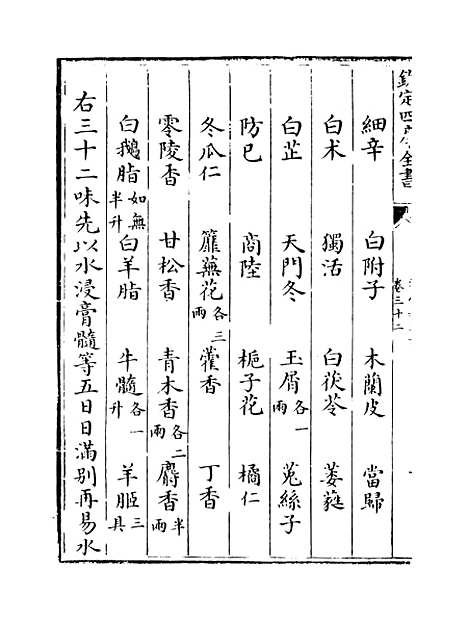 欽定四庫全書
卷三十二
細辛 白附子 木蘭皮 當歸
白术 獨活 白茯苓 萎蕤
白芷 天門冬 玉屑各一兩 菟絲子
防已 商陸 梔子花 橘仁
冬瓜仁 蘼蕪花各三兩 藿香 丁香
零陵香 甘松香 青木香各二兩 麝香半兩
白鵝脂如無半升 白羊脂 牛髓各一升 羊胵三具
右三十二味先以水浸膏髓等五日日滿别再易水